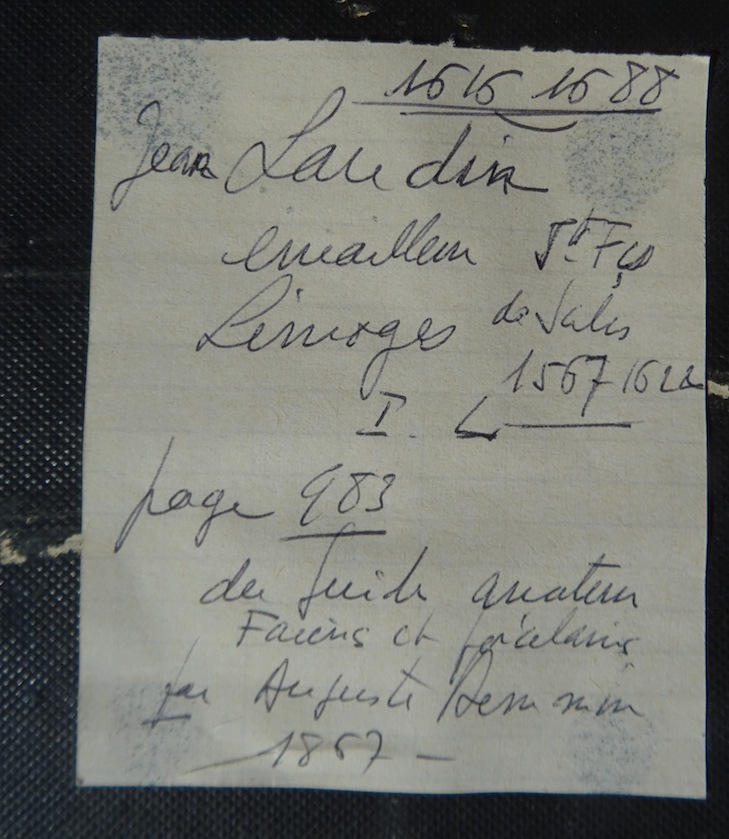 1616 1688
Jean Laudin
emailleur St Fçs
Limoges de Sales
1567 1622
I. L
page 983
du Guide amateur
Faïens et porcelaines
par Auguste Demmin
1867 -